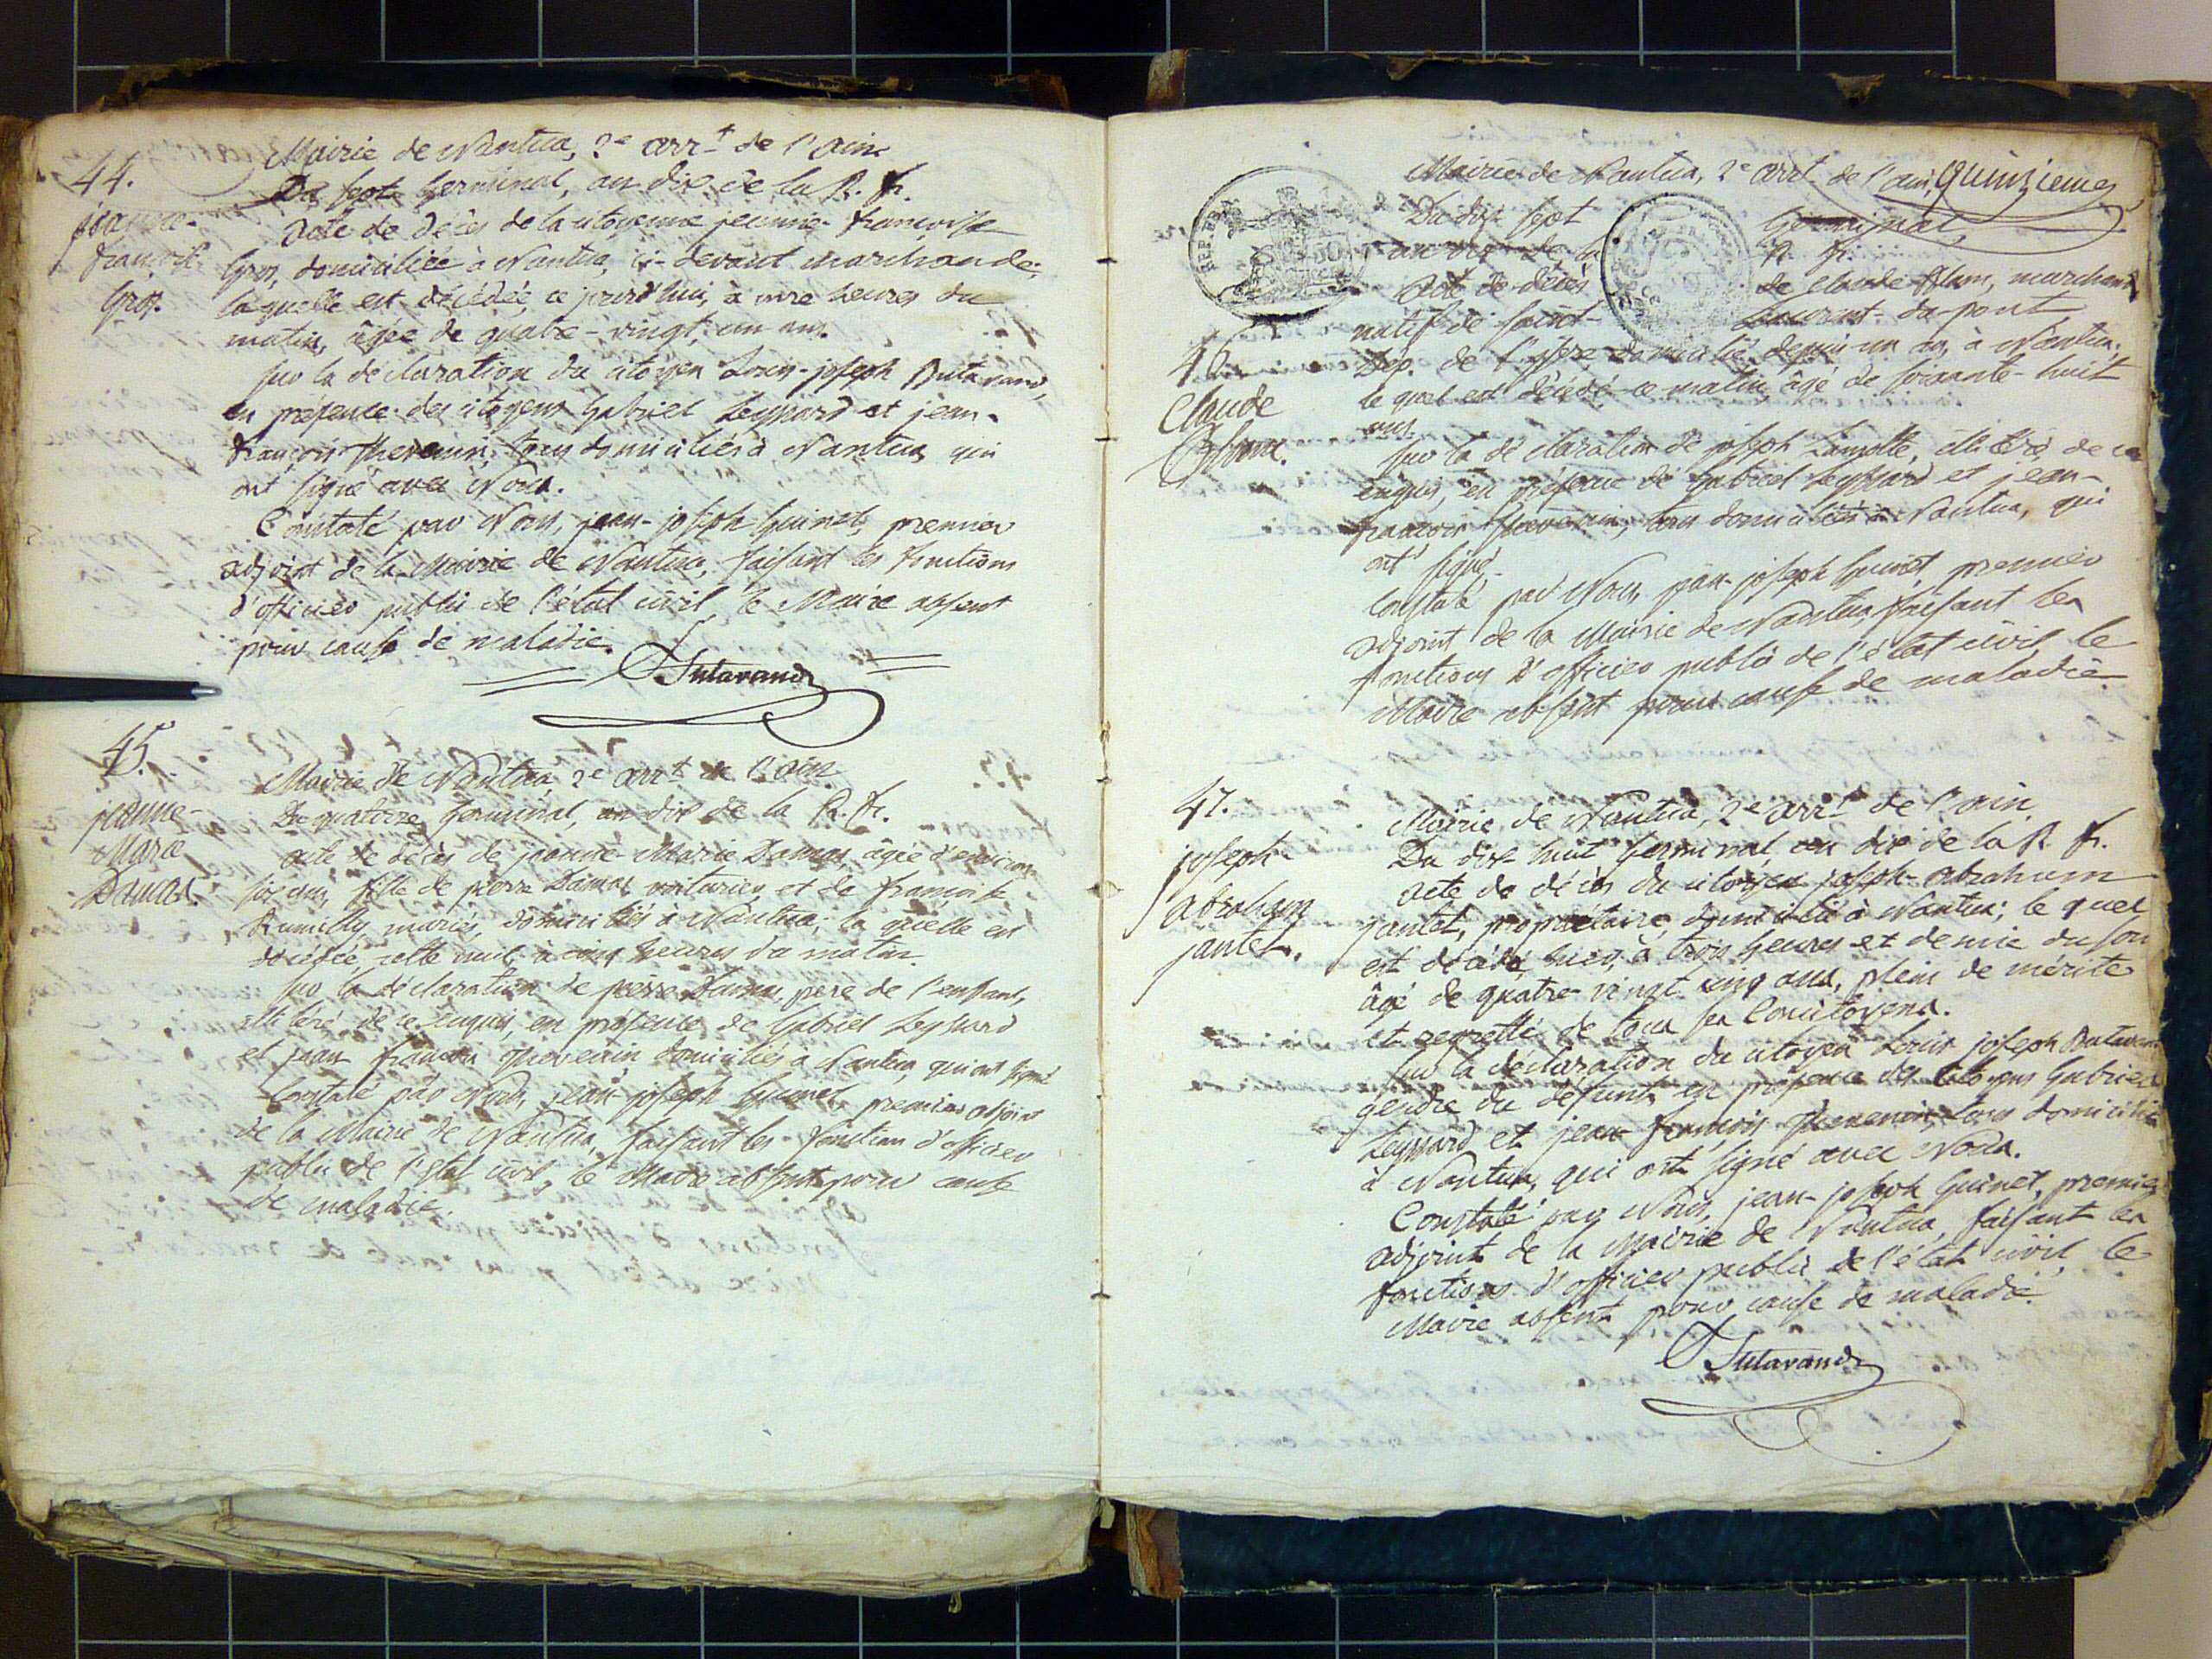 Mairie de Nantua, 2e arrt de l'ain
44.
Du sept Germinal, an dix de la R. fr.
jeanne-
françoise
Gros.
Acte de décès de la citoyenne jeanne-françoise
Gros, domiciliée à Nantua, ci-devant marchande;
laquelle est décédée, ce jourd'hui, à onze heures du
matin, âgée de quatre-vingt-un ans.
sur la déclaration du citoyen Louis-joseph Butavand,
en présence des citoyens Gabriel Leyssard et jean-
françois thevenin, tous domiciliés à Nantua qui
ont signé avec Nous.
Constaté par Nous, jean-joseph Guinet, premier
adjoint de la Mairie de Nantua, faisant les fonctions
d'officier public de l'état civil, le Maire absent
pour cause de maladie.
Butavand
45.
jeanne-
Marie
Damas.
Mairie de Nantua, 2e arrt de l'ain
Du quatorze Germinal, an dix de la R. fr.
acte de décès de jeanne-Marie Damas, âgée d'environ
six ans, fille de pierre Damas, voiturier, et de françoise
Rumilly, mariés, domiciliés à Nantua; la quelle est
décédée cette nuit à cinq heures du matin.
sur la déclaration de pierre Damas, père de l'enfant,
illitéré de ce enquis, en présence de Gabriel Leyssard
et jean françois thevenin, domiciliés à Nantua, qui ont signé
Constaté par Nous, jean-joseph Guinet, premier adjoint
de la Mairie de Nantua, faisant les fonction d'officier
public de l'état civil, le Maire absent pour cause
de maladie.
Mairie de Nantua, 2e arrt de l'ain, Quinzieme
Du dix sept Germinal
an dix de la R. fr.
46.
Claude
Acte de décès de Claude, marchand
natif de saint-Laurent-du-pont
Dép. de l'isère, domicilié depuis un an, à Nantua;
le quel est décédé ce matin, âgé de soixante-huit
ans.
sur la déclaration de joseph Lamotte, illitéré de ce
enquis, en présence de Gabriel Leyssard et jean-
françois thevenin, tous domiciliés à Nantua, qui
ont signé.
Constaté par Nous, jean-joseph Guinet, premier
adjoint de la Mairie de Nantua, faisant les
fonctions d'officier public de l'état civil, le
Maire absent pour cause de maladie.
47.
joseph-
abraham
jantet.
Mairie de Nantua, 2e arrt de l'ain
Du dix huit Germinal, an dix de la R. fr.
acte de décès du citoyen joseph-abraham
jantet, propriétaire, domicilié à Nantua; le quel
est décédé, hier, à trois heures et demie du soir
âgé de quatre-vingt cinq ans, plein de mérite
et regretté de tous ses Concitoyens.
sur la déclaration du citoyen Louis joseph Butavand
gendre du défunt, en présence des citoyens Gabriel
Leyssard et jean françois thevenin, tous domiciliés
à Nantua, qui ont signé avec Nous.
Constaté par Nous, jean-joseph Guinet, premier
adjoint de la Mairie de Nantua, faisant les
fonctions d'officier public de l'état civil, le
Maire absent pour cause de maladie.
Butavand